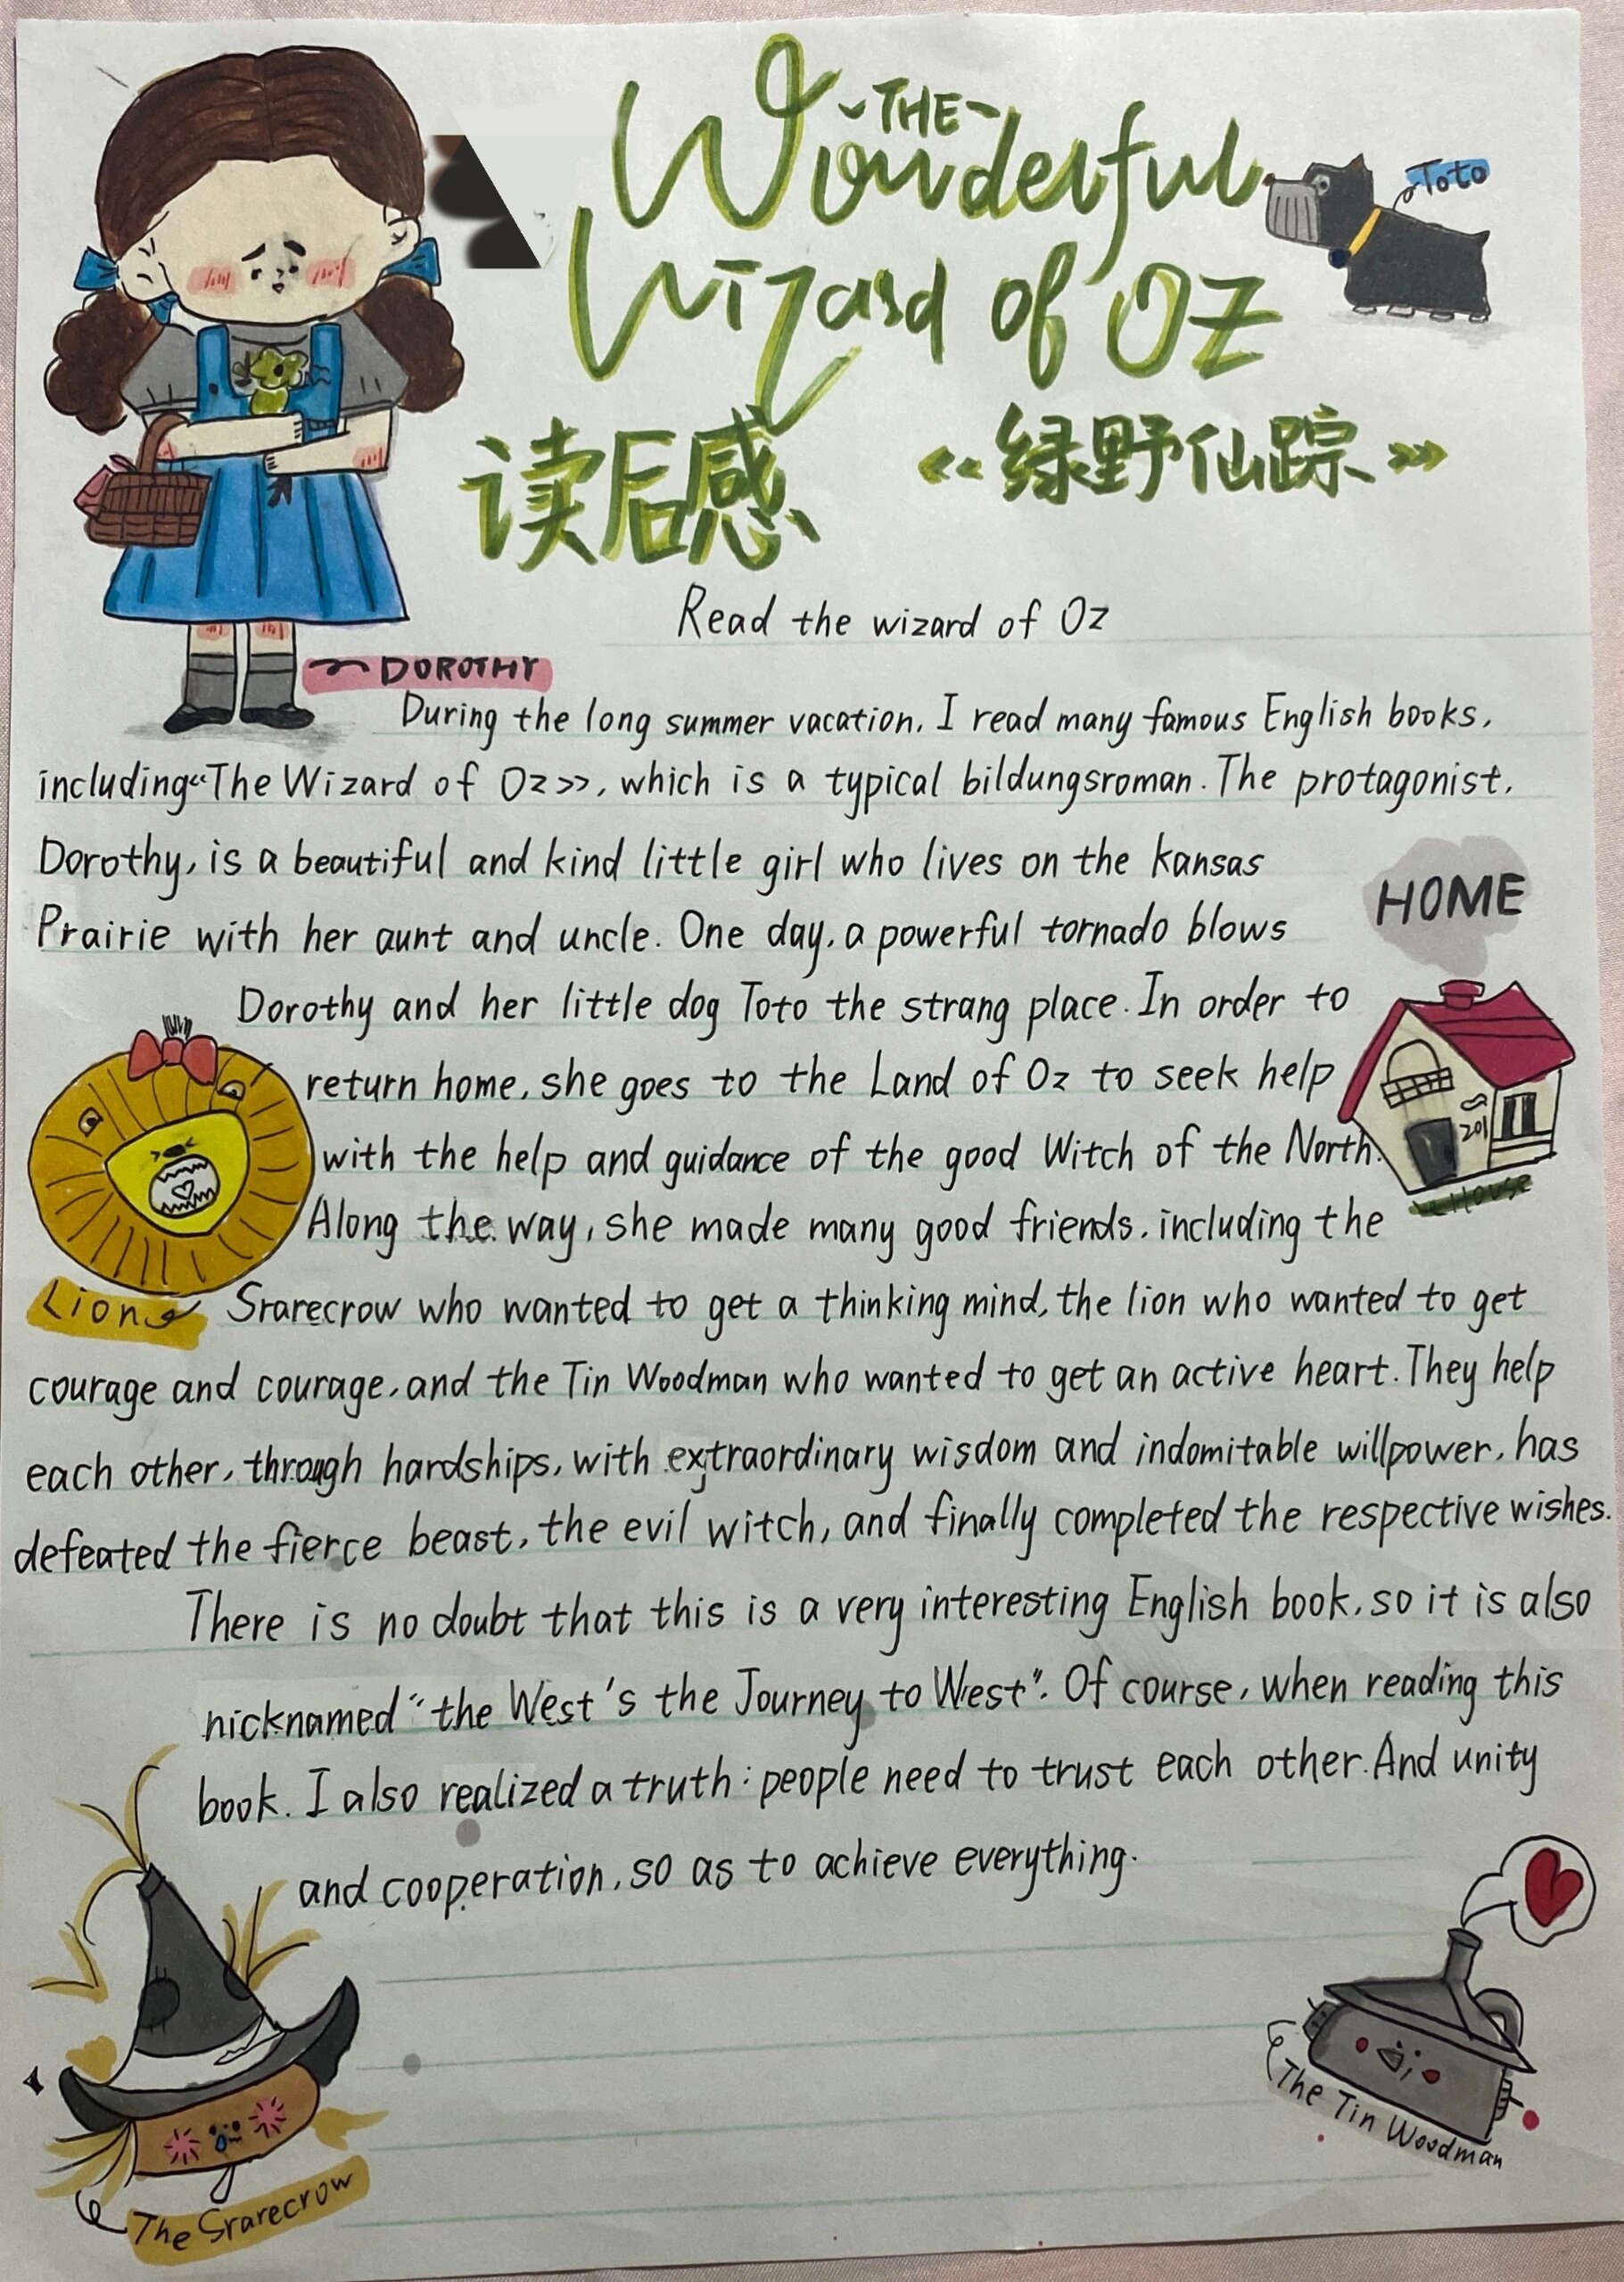 THE
Wonderful
Wizard of OZ
Toto
读后感 《绿野仙踪》
Read the wizard of Oz
DOROTHY
During the long summer vacation, I read many famous English books,
including“The Wizard of Oz>>, which is a typical bildungsroman. The protagonist,
Dorothy, is a beautiful and kind little girl who lives on the kansas
Prairie with her aunt and uncle. One day, a powerful tornado blows
HOME
Dorothy and her little dog Toto the strang place. In order to
return home, she goes to the Land of Oz to seek help
201
with the help and guidance of the good Witch of the North.
House
Along the way, she made many good friends, including the
Lion
Srarecrow who wanted to get a thinking mind, the lion who wanted to get
courage and courage, and the Tin Woodman who wanted to get an active heart. They help
each other, through hardships, with extraordinary wisdom and indomitable willpower, has
defeated the fierce beast, the evil witch, and finally completed the respective wishes.
There is no doubt that this is a very interesting English book, so it is also
nicknamed “the West's the Journey to West”. Of course, when reading this
book. I also realized a truth: people need to trust each other. And unity
and cooperation, so as to achieve everything.
The Tin Woodman
The Srarecrow